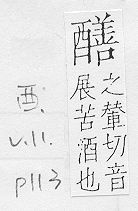 ⿰酉善
之輦切音
展苦酒也
酉.
v.11.
p113